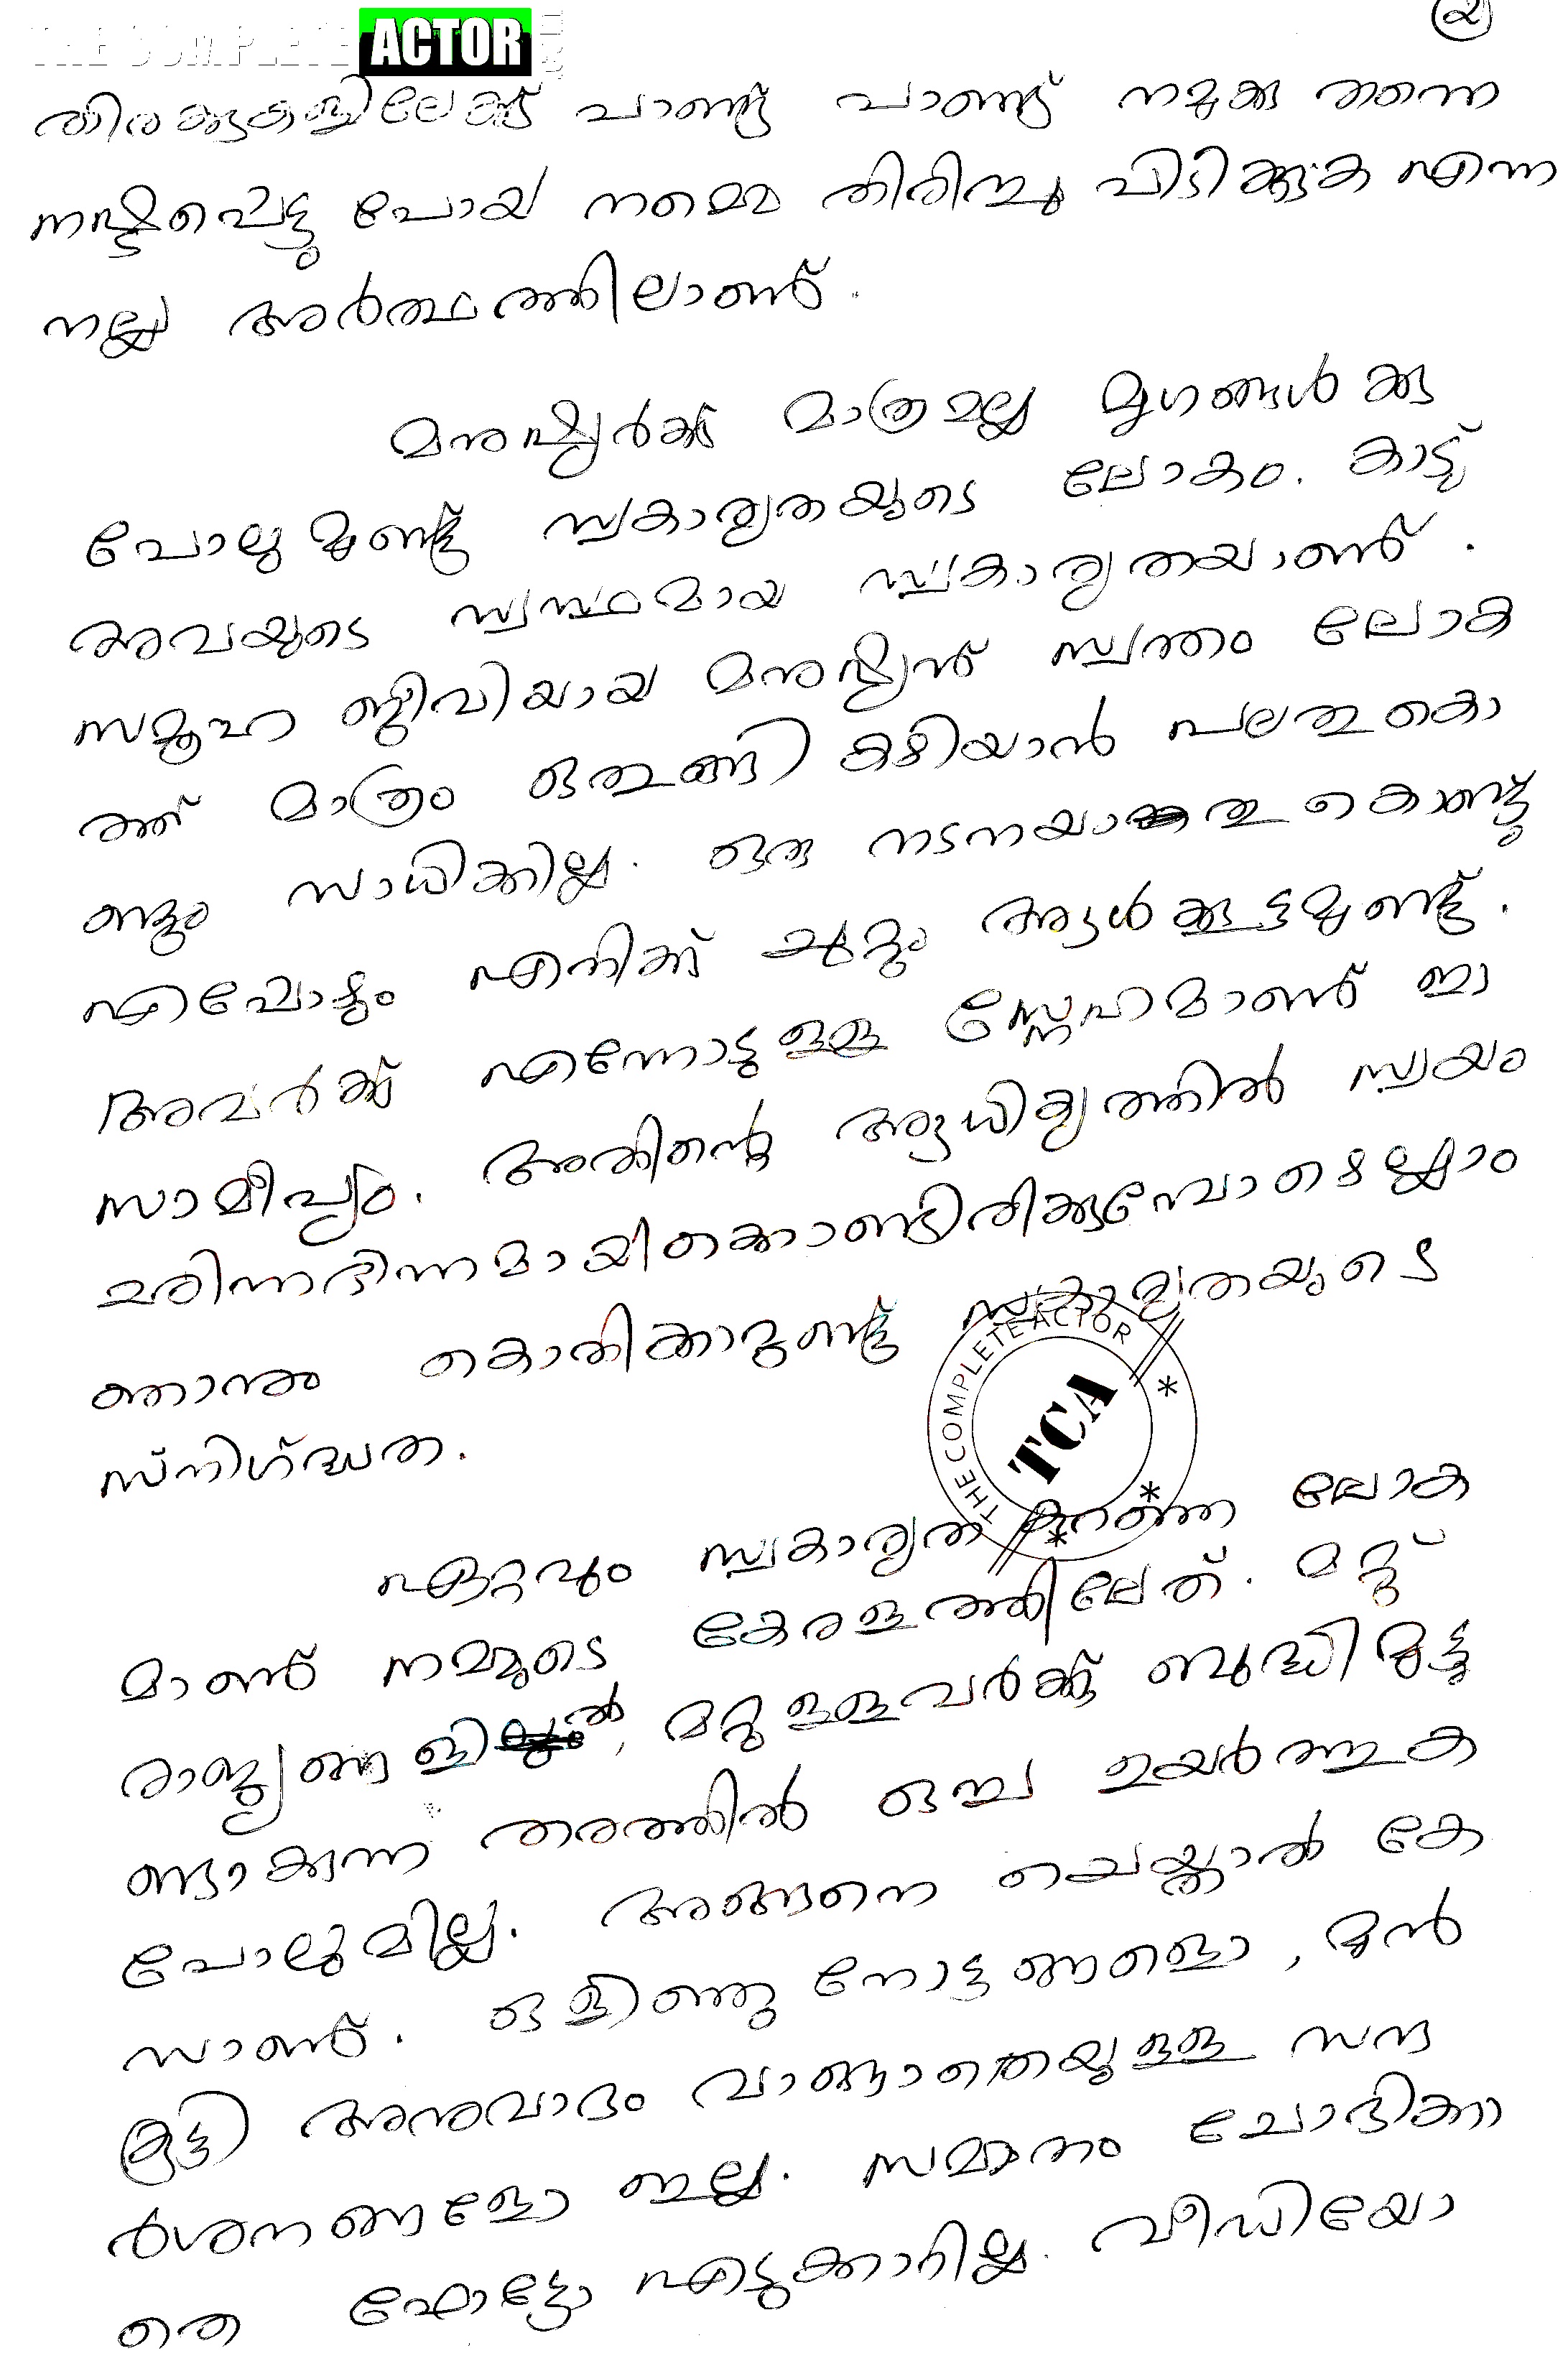 THE COMPLETE ACTOR
൨
തിരക്കുകളിലേക്ക് പാഞ്ഞ് പാഞ്ഞ് നമുക്കു തന്നെ
നഷ്ടപ്പെട്ടു പോയ നമ്മെ തിരിച്ചു പിടിക്കുക എന്ന
നല്ല അർത്ഥത്തിലാണ്.
മനുഷ്യർക്ക് മാത്രമല്ല മൃഗങ്ങൾക്കു
പോലുമുണ്ട് സ്വകാര്യതയുടെ ലോകം. കാട്
അവയുടെ സ്വസ്ഥമായ സ്വകാര്യതയാണ്.
സമൂഹ ജീവിയായ മനുഷ്യന് സ്വന്തം ലോക
ത്ത് മാത്രം ഒതുങ്ങി കഴിയാൻ പലതുകൊ
ണ്ടും സാധിക്കില്ല. ഒരു നടനായതുകൊണ്ടു
എപ്പോഴും എനിക്ക് ചുറ്റും ആൾക്കൂട്ടമുണ്ട്.
അവർക്ക് എന്നോടുള്ള സ്നേഹമാണ് ഈ
സാമീപ്യം. അതിന്റെ ആധിക്യത്തിൽ സ്വയം
ചരിന്നഭിന്നമായിക്കൊണ്ടിരിക്കുമ്പോഴെല്ലാം
ഞാനും കൊതിക്കാറുണ്ട് സ്വകാര്യതയുടെ
സ്നിഗ്ദ്ധത.
THE COMPLETE ACTOR
TCA
ഏറ്റവും സ്വകാര്യത കുറഞ്ഞ ലോക
മാണ് നമ്മുടെ കേരളത്തിലേത്. മറ്റ്
രാജ്യങ്ങളിൽ, മറ്റുള്ളവർക്ക് ബുദ്ധിമുട്ടു
ണ്ടാക്കുന്ന തരത്തിൽ ഒച്ച ഉയർത്തുക
പോലുമില്ല. അങ്ങനെ ചെയ്താൽ കേ
സാണ്. ഒളിഞ്ഞു നോട്ടങ്ങളൊ, മുൻ
കൂട്ടി അനുവാദം വാങ്ങാതെയുള്ള സന്ദ
ർശനങ്ങളോ ഇല്ല. സമ്മതം ചോദിക്കാ
തെ ഫോട്ടോ എടുക്കാറില്ല. വീഡിയോ